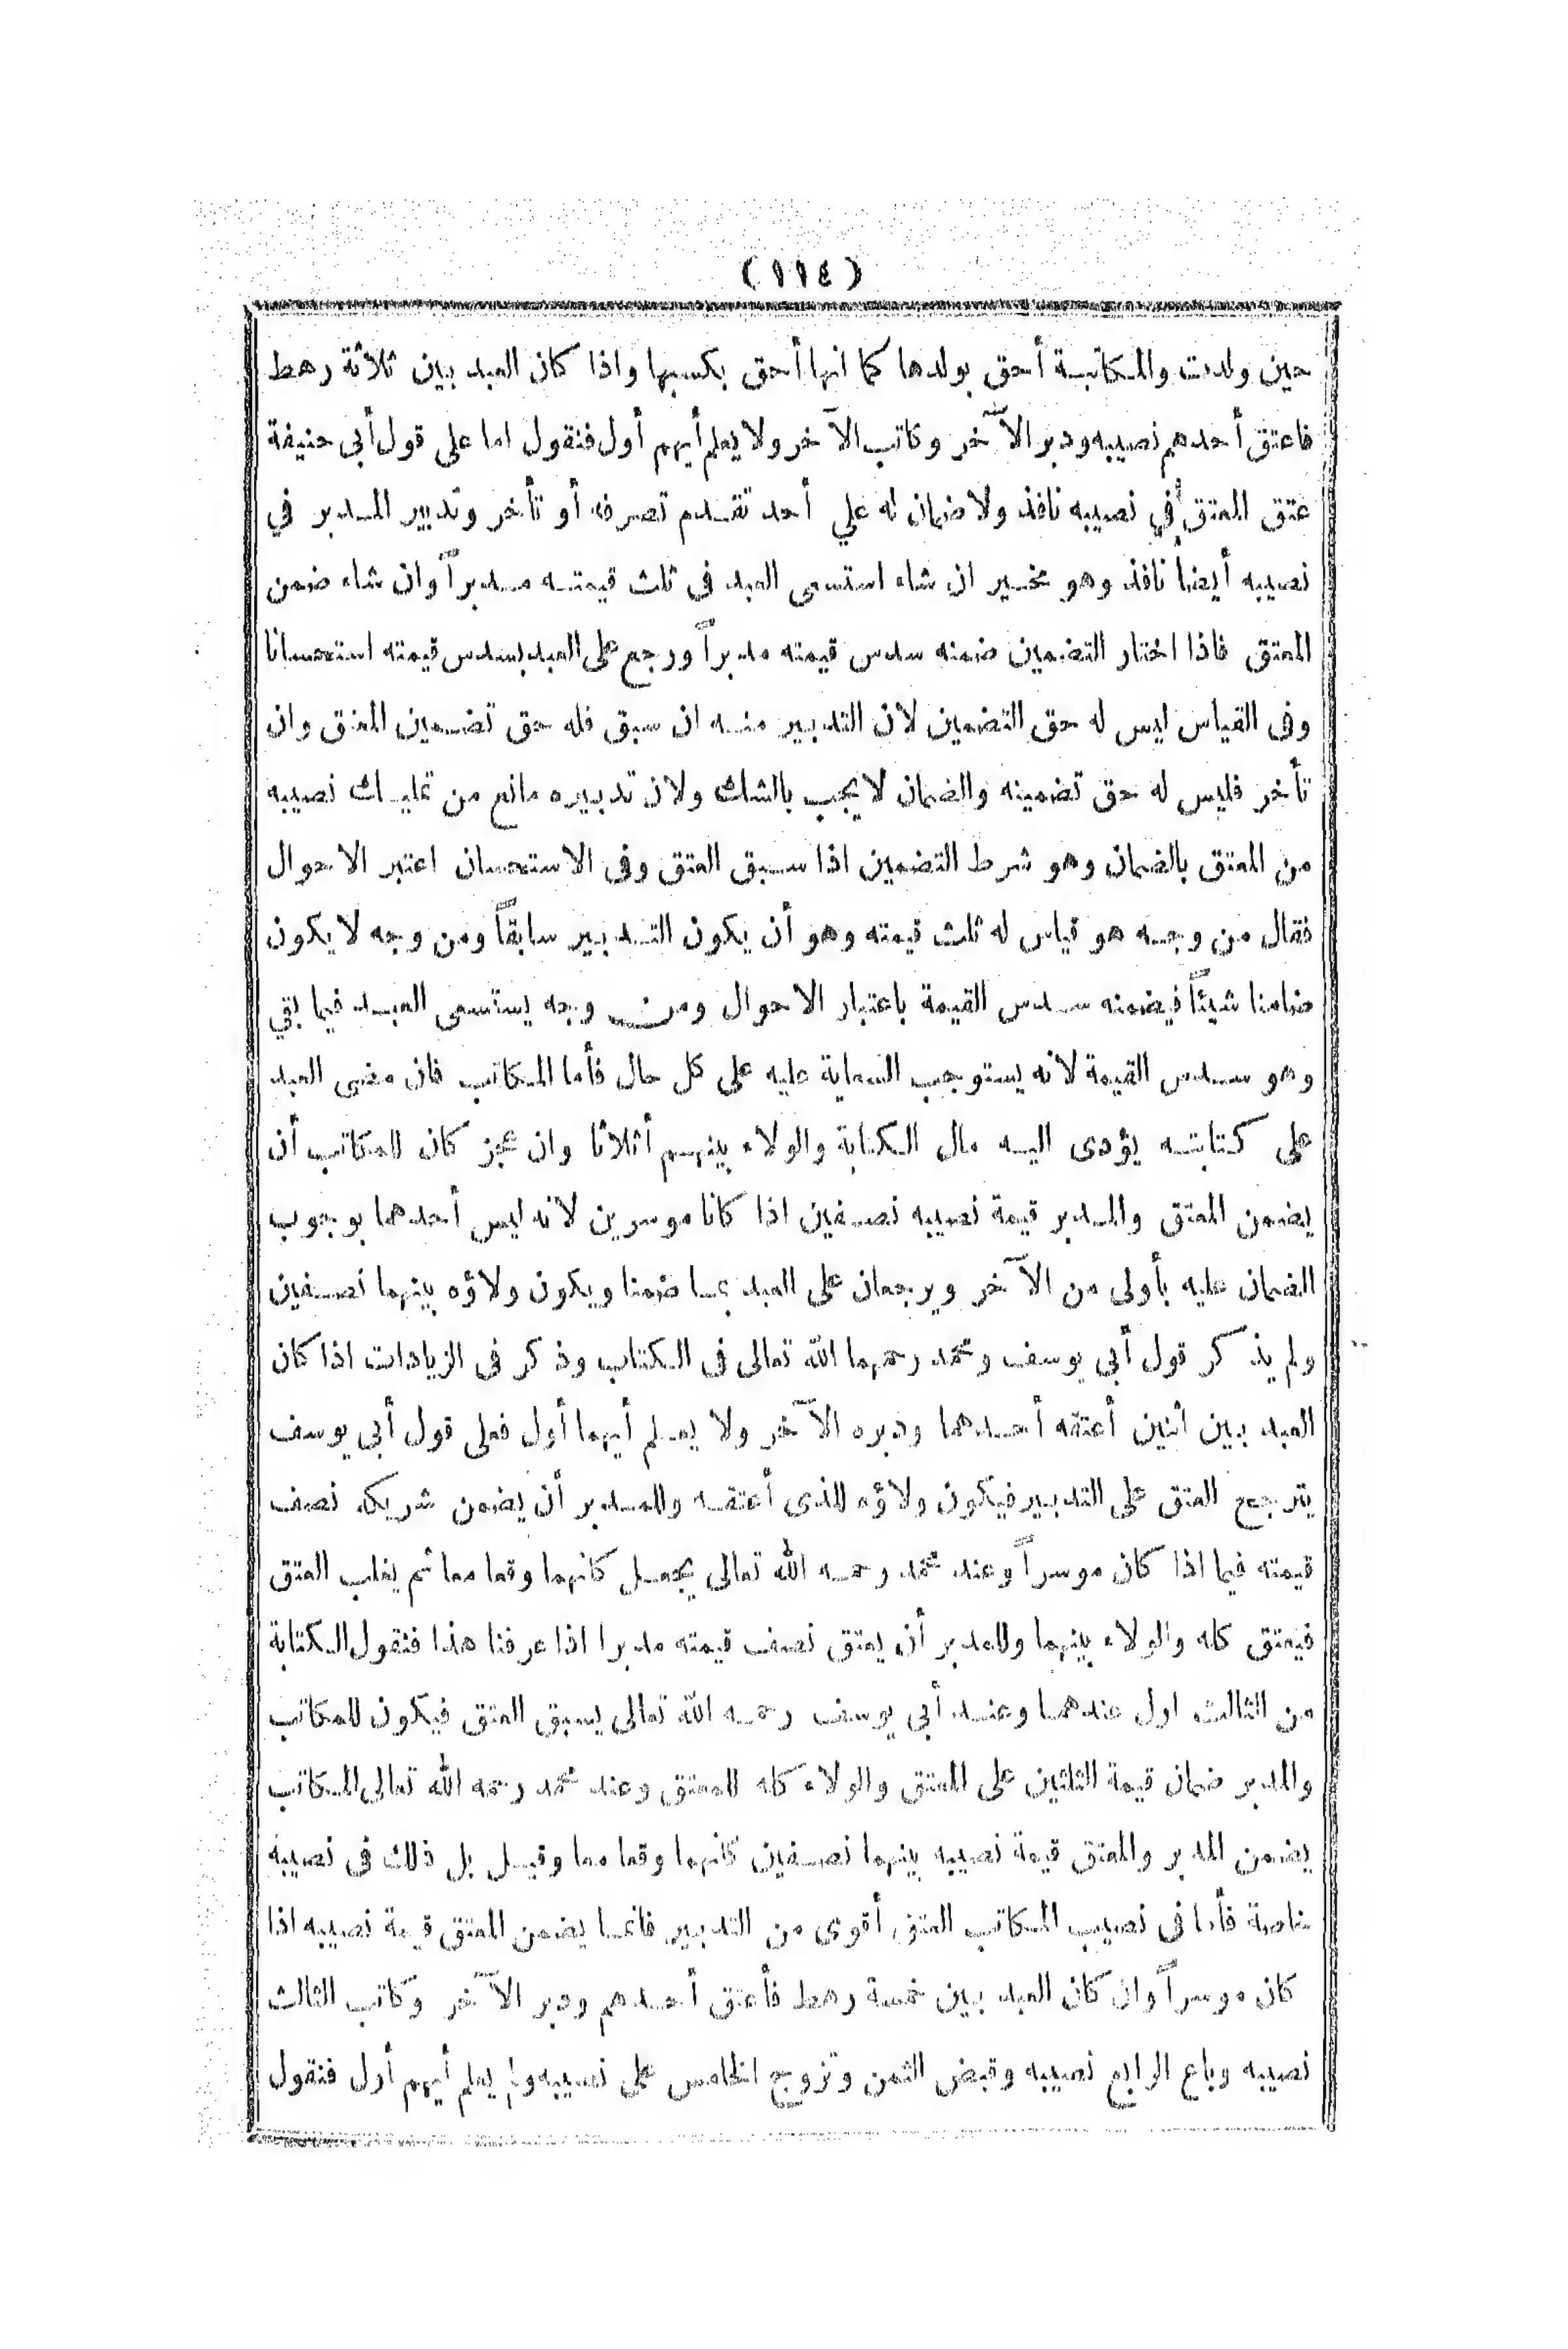 (١١٤)
حين ولدت والمكاتبة أحق بولدها كما انها أحق بكسبها واذا كان العبد بين ثلاثة رهط
فاعتق أحدهم نصيبه ودبر الآخر وكاتب الآخر ولا يعلم أيهم أول فنقول اما على قول أبى حنيفة
عتق المعتق في نصيبه نافذ ولا ضمان له علي أحد تقدم تصرفه أو تأخر وتدبير المدبر في
نصيبه أيضا نافذ وهو مخير ان شاء استسعى العبد فى ثلث قيمته مدبراً وان شاء ضمن
المعتق فاذا اختار التضمين ضمنه سدس قيمته مدبراً ورجع على العبد بسدس قيمته استحسانا
وفى القياس ليس له حق التضمين لان التدبير منه ان سبق فله حق تضمين المعتق وان
تأخر فليس له حق تضمينه والضمان لا يجب بالشك ولان تدبيره مانع من تمليك نصيبه
من المعتق بالضمان وهو شرط التضمين اذا سبق العتق وفى الاستحسان اعتبر الاحوال
فقال من وجه هو قياس له ثلث قيمته وهو أن يكون التدبير سابقاً ومن وجه لا يكون
ضامنا شيئاً فيضمنه سدس القيمة باعتبار الاحوال ومن وجه يستسعى العبد فيما بقي
وهو سدس القيمة لانه يستوجب السعاية عليه على كل حال فأما المكاتب فان مضى العبد
على كتابته يؤدى اليه مال الكتابة والولاء بينهم أثلاثا وان عجز كان للمكاتب أن
يضمن المعتق والمدبر قيمة نصيبه نصفين اذا كانا موسرين لانه ليس أحدهما بوجوب
الضمان عليه بأولى من الآخر ويرجعان على العبد بما ضمنا ويكون ولاؤه بينهما نصفين
ولم يذكر قول أبى يوسف ومحمد رحمهما الله تعالى فى الكتاب وذكر فى الزيادات اذا كان
العبد بين اثنين أعتقه أحدهما ودبره الآخر ولا يعلم أيهما أول فعلى قول أبي يوسف
يترجح العتق على التدبير فيكون ولاؤه للذى أعتقه وللمدبر أن يضمن شريكه نصف
قيمته فيما اذا كان موسراً وعند محمد رحمه الله تعالى يجعل كانهما وقعا معا ثم يغلب العتق
فيعتق كله والولاء بينهما وللمدبر أن يعتق نصف قيمته مدبرا اذا عرفنا هذا فنقول الكتابة
من الثالث اول عندهما وعند أبي يوسف رحمه الله تعالى يسبق العتق فيكون للمكاتب
والمدبر ضمان قيمة الثلثين على المعتق والولاء كله للمعتق وعند محمد رحمه الله تعالى المكاتب
يضمن المدبر والمعتق قيمة نصيبه بينهما نصفين كانهما وقعا معا وقيل بل ذلك فى نصيبه
خاصة فأما فى نصيب المكاتب العتق أقوى من التدبير فانما يضمن المعتق قيمة نصيبه اذا
كان موسراً وان كان العبد بين خمسة رهط فأعتق أحدهم ودبر الآخر وكاتب الثالث
نصيبه وباع الرابع نصيبه وقبض الثمن وتزوج الخامس على نصيبه ولم يعلم أيهم أول فنقول